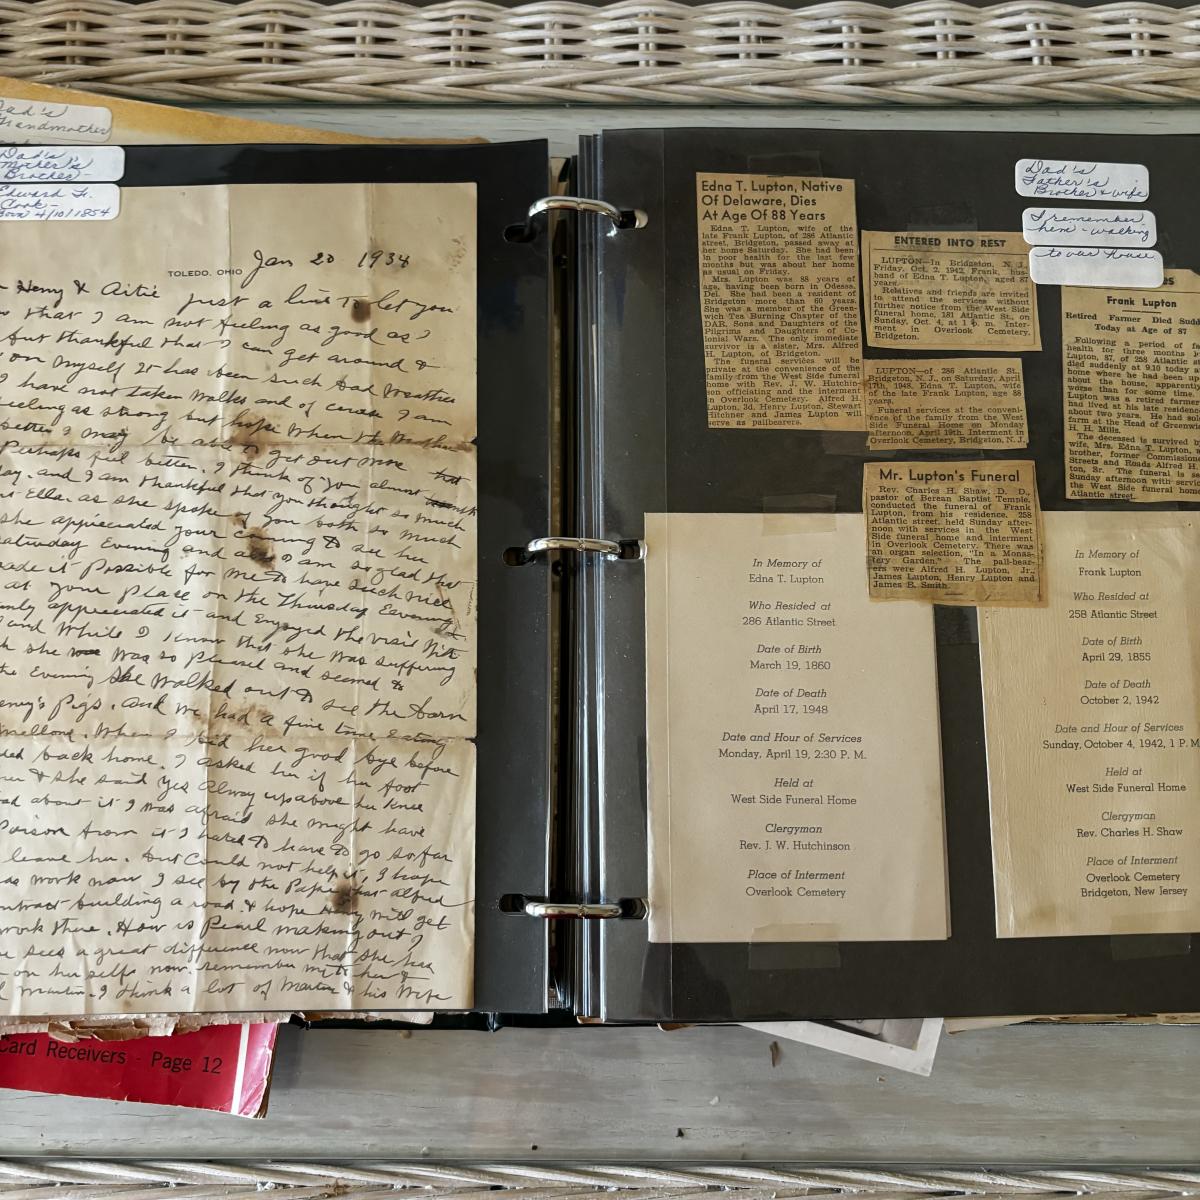 Dad's
Grandmother
Dad's
Mother's
Brother -
Edward F.
Cook -
Born 4/10/1854
TOLEDO, OHIO Jan 20 1934
Henry & Artie just a line to let you
that I am not feeling as good as I
but thankful that I can get around &
on myself it has been such bad weather
I have not taken walks and of course I am
feeling as strong but hope when the weather
better I may be able to get out more
Perhaps feel better. I think of you almost
day. and I am thankful that you thought so much
Ella. as she spoke of you both so much
she appreciated your coming to see her
Saturday Evening and also I am so glad that
made it possible for me to have such nice
at your place on the Thursday Evening
appreciated it and Enjoyed the visit with
and while I know that she was suffering
she was so pleased and seemed to
the Evening she walked out to see the barn
Henry's Pigs. and we had a fine time Eating
Mellons. When I bid her good bye before
back home. I asked her if her foot
& she said yes alway up above her knee
about it I was afraid she might have
Poison from it I hated to have to go so far
leave her. but could not help it, I hope
work now I see by the Paper that alfred
contract building a road & hope Henry will get
work there. How is Pearl making out I
sees a great difference now that she has
on her self now. remember me to her &
Martin. I think a lot of Martin & his Wife
Card Receivers - Page 12
Edna T. Lupton, Native
Of Delaware, Dies
At Age Of 88 Years
Edna T. Lupton, wife of the
late Frank Lupton, of 286 Atlantic
street, Bridgeton, passed away at
her home Saturday. She had been
in poor health for the last few
months but was about her home
as usual on Friday.
Mrs. Lupton was 88 years of
age, having been born in Odessa,
Del. She had been a resident of
Bridgeton more than 60 years.
She was a member of the Green-
wich Tea Burning Chapter of the
DAR, Sons and Daughters of the
Pilgrims and Daughters of Co-
lonial Wars. The only immediate
survivor is a sister, Mrs. Alfred
H. Lupton, of Bridgeton.
The funeral services will be
private at the convenience of the
family from the West Side funeral
home with Rev. J. W. Hutchin-
son officiating and the interment
in Overlook Cemetery. Alfred H.
Lupton, 3d, Henry Lupton, Stewart
Pitchner and James Lupton will
serve as pallbearers.
ENTERED INTO REST
LUPTON—In Bridgeton, N. J.,
Friday, Oct. 2, 1942, Frank, hus-
band of Edna T. Lupton, aged 87
years.
Relatives and friends are invited
to attend the services without
further notice from the West Side
funeral home, 181 Atlantic St., on
Sunday, Oct. 4, at 1 p. m. Inter-
ment in Overlook Cemetery,
Bridgeton.
LUPTON—of 286 Atlantic St.,
Bridgeton, N. J., on Saturday, April
17th, 1948, Edna T. Lupton, wife
of the late Frank Lupton, age 88
years.
Funeral services at the conveni-
ence of the family from the West
Side Funeral Home on Monday
afternoon, April 19th. Interment in
Overlook Cemetery, Bridgeton, N. J.
Mr. Lupton's Funeral
Rev. Charles H. Shaw, D. D.,
pastor of Berean Baptist Temple,
conducted the funeral of Frank
Lupton, from his residence, 258
Atlantic street, held Sunday after-
noon with services in the West
Side funeral home and interment
in Overlook Cemetery. There was
an organ selection, "In a Monas-
tery Garden." The pall-bear-
ers were Alfred H. Lupton, Jr.,
James Lupton, Henry Lupton and
James B. Smith.
Dad's
Father's
Brother & wife
I remember
him - walking
to our house
Frank Lupton
Retired Farmer Died Sudd
Today at Age of 87
Following a period of fa
health for three months
Lupton, 87, of 258 Atlantic s
died suddenly at 9.10 today a
home where he had been up
about the house, apparently
worse than for some time.
Lupton was a retired farmer
had lived at his late residence
about two years. He had sol
farm at the Head of Greenwi
H. H. Mills.
The deceased is survived b
wife, Mrs. Edna T. Lupton, a
brother, former Commissione
Streets and Roads Alfred H
ton, Sr. The funeral is se
Sunday afternoon with servic
the West Side funeral hom
Atlantic street.
In Memory of
Edna T. Lupton
Who Resided at
286 Atlantic Street
Date of Birth
March 19, 1860
Date of Death
April 17, 1948
Date and Hour of Services
Monday, April 19, 2:30 P. M.
Held at
West Side Funeral Home
Clergyman
Rev. J. W. Hutchinson
Place of Interment
Overlook Cemetery
In Memory of
Frank Lupton
Who Resided at
258 Atlantic Street
Date of Birth
April 29, 1855
Date of Death
October 2, 1942
Date and Hour of Services
Sunday, October 4, 1942, 1 P. M
Held at
West Side Funeral Home
Clergyman
Rev. Charles H. Shaw
Place of Interment
Overlook Cemetery
Bridgeton, New Jersey